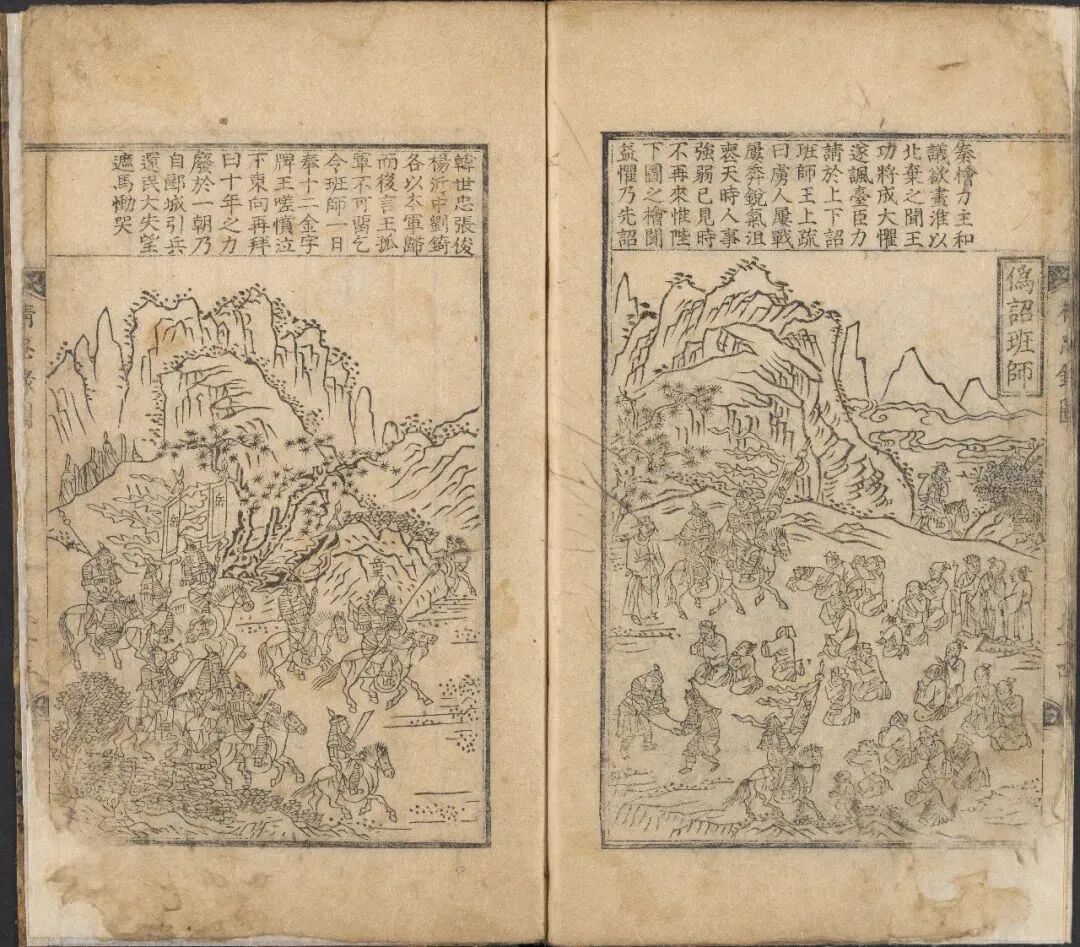 精忠錄圖
僞詔班師
秦檜力主和
議欲畫淮以
北棄之聞王
功將成大懼
遂諷臺臣力
請於上下詔
班師王上疏
曰虜人屢戰
屢奔銳氣沮
喪天時人事
強弱已見時
不再來惟陛
下圖之檜聞
益懼乃先詔
岳
韓世忠張俊
楊沂中劉錡
各以夲軍歸
而後言王孤
軍不可留乞
今班師一日
奉十二金字
牌王嗟憤泣
下東向再拜
曰十年之力
廢於一朝乃
自郾城引兵
還民大失望
遮馬慟哭
岳
岳
精忠錄圖